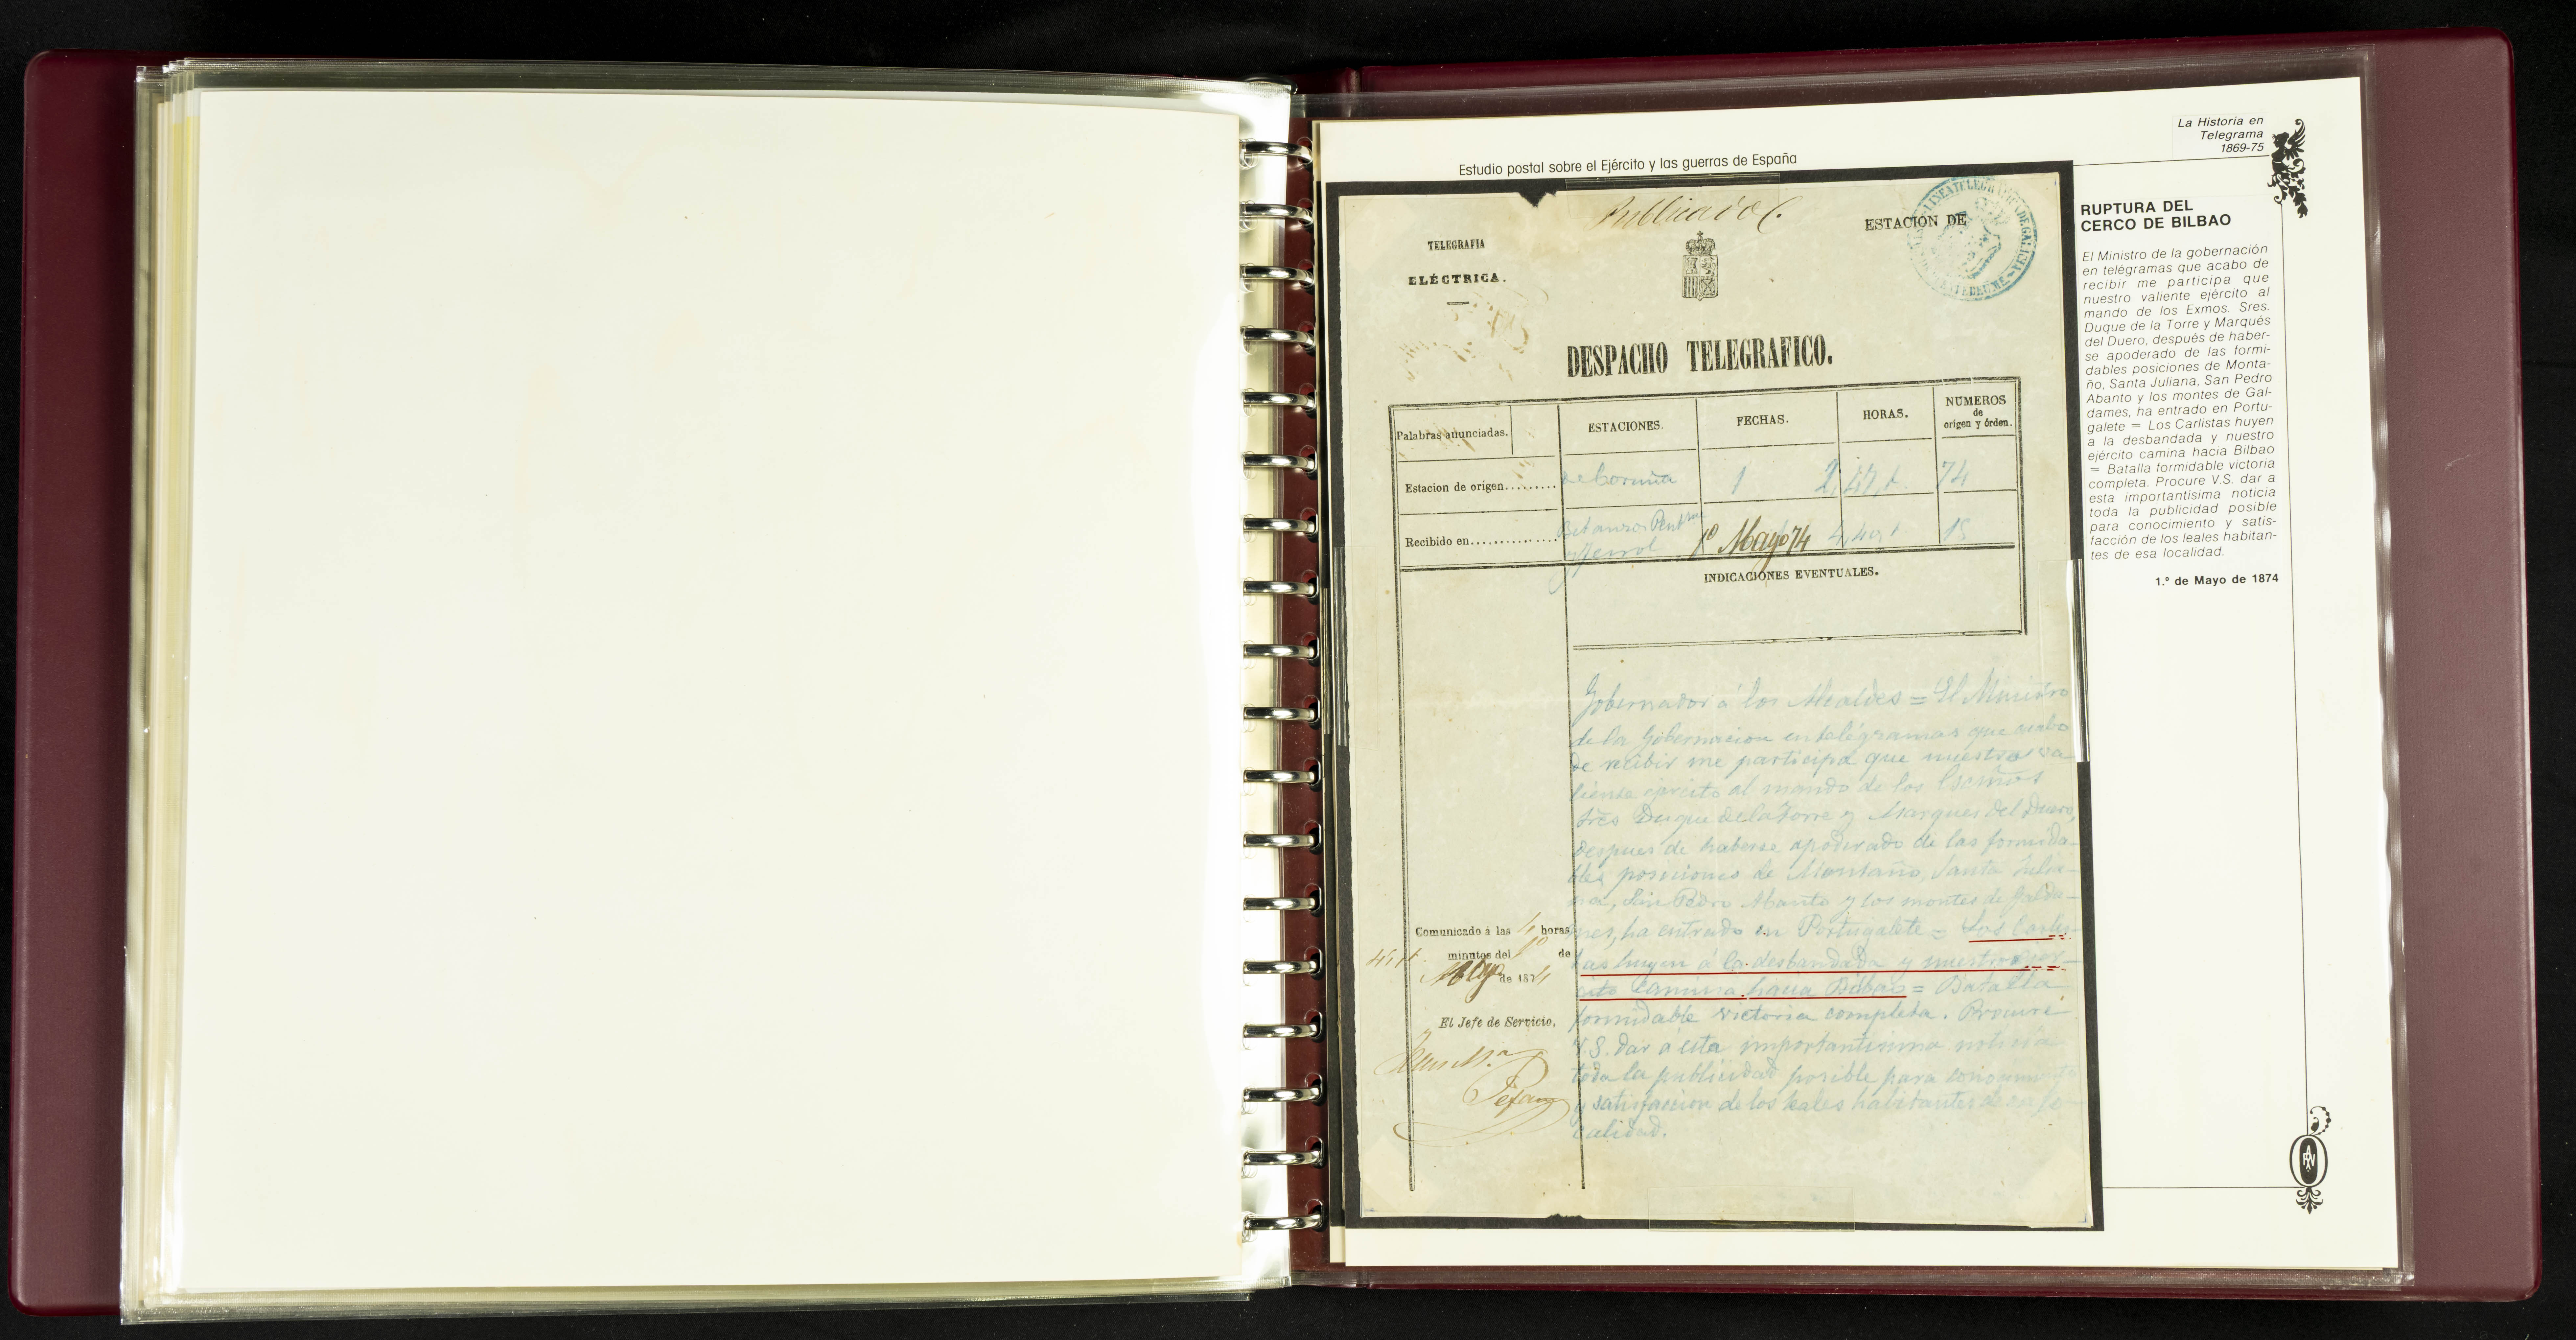 La Historia en
Telegrama
1869-75
Estudio postal sobre el Ejército y las guerras de España
Publicado
ESTACION DE
TELEGRAFIA
ELÉCTRICA.
DESPACHO TELEGRAFICO.
Palabras anunciadas.
ESTACIONES.
FECHAS.
HORAS.
NUMEROS
de
origen y órden.
Estacion de origen.........
de Coruña
1
2,47,t.
74
Recibido en...............
Betanzos
y Ferrol
1º Mayo 74
4,40,t
18
INDICACIONES EVENTUALES.
Gobernador á los Alcaldes = El Ministro
de la Gobernacion en telégramas que acabo
de recibir me participa que nuestro va
liente ejército al mando de los Excmos
Sres Duque de la Torre y Marques del Duero,
despues de haberse apoderado de las formida-
bles posiciones de Montaño, Santa Julia-
na, San Pedro Abanto y los montes de Galda-
mes, ha entrado en Portugalete = Los Carlis-
tas huyen á la desbandada y nuestro ejér-
cito camina hacia Bilbao = Batalla
formidable victoria completa. Procure
V.S. dar a esta importantisima noticia
toda la publicidad posible para conocimiento
y satisfaccion de los leales habitantes de esa lo-
calidad.
Comunicado á las 4 horas
minutos del 1º de
Mayo de 1874
El Jefe de Servicio,
RUPTURA DEL
CERCO DE BILBAO
El Ministro de la gobernación
en telégramas que acabo de
recibir me participa que
nuestro valiente ejército al
mando de los Exmos. Sres.
Duque de la Torre y Marqués
del Duero, después de haber-
se apoderado de las formi-
dables posiciones de Monta-
ño, Santa Juliana, San Pedro
Abanto y los montes de Gal-
dames, ha entrado en Portu-
galete = Los Carlistas huyen
a la desbandada y nuestro
ejército camina hacia Bilbao
= Batalla formidable victoria
completa. Procure V.S. dar a
esta importantisima noticia
toda la publicidad posible
para conocimiento y satis-
facción de los leales habitan-
tes de esa localidad.
1.º de Mayo de 1874